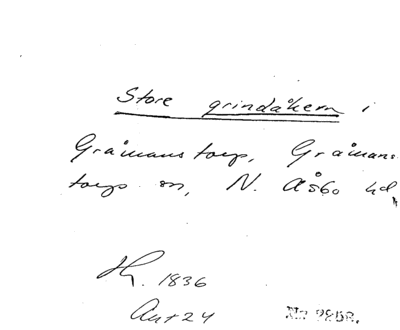 Store grindåkern i
Gråmanstorp, Gråmans-
torps sn, N. Åsbo hd,
H. 1836
Akt 24